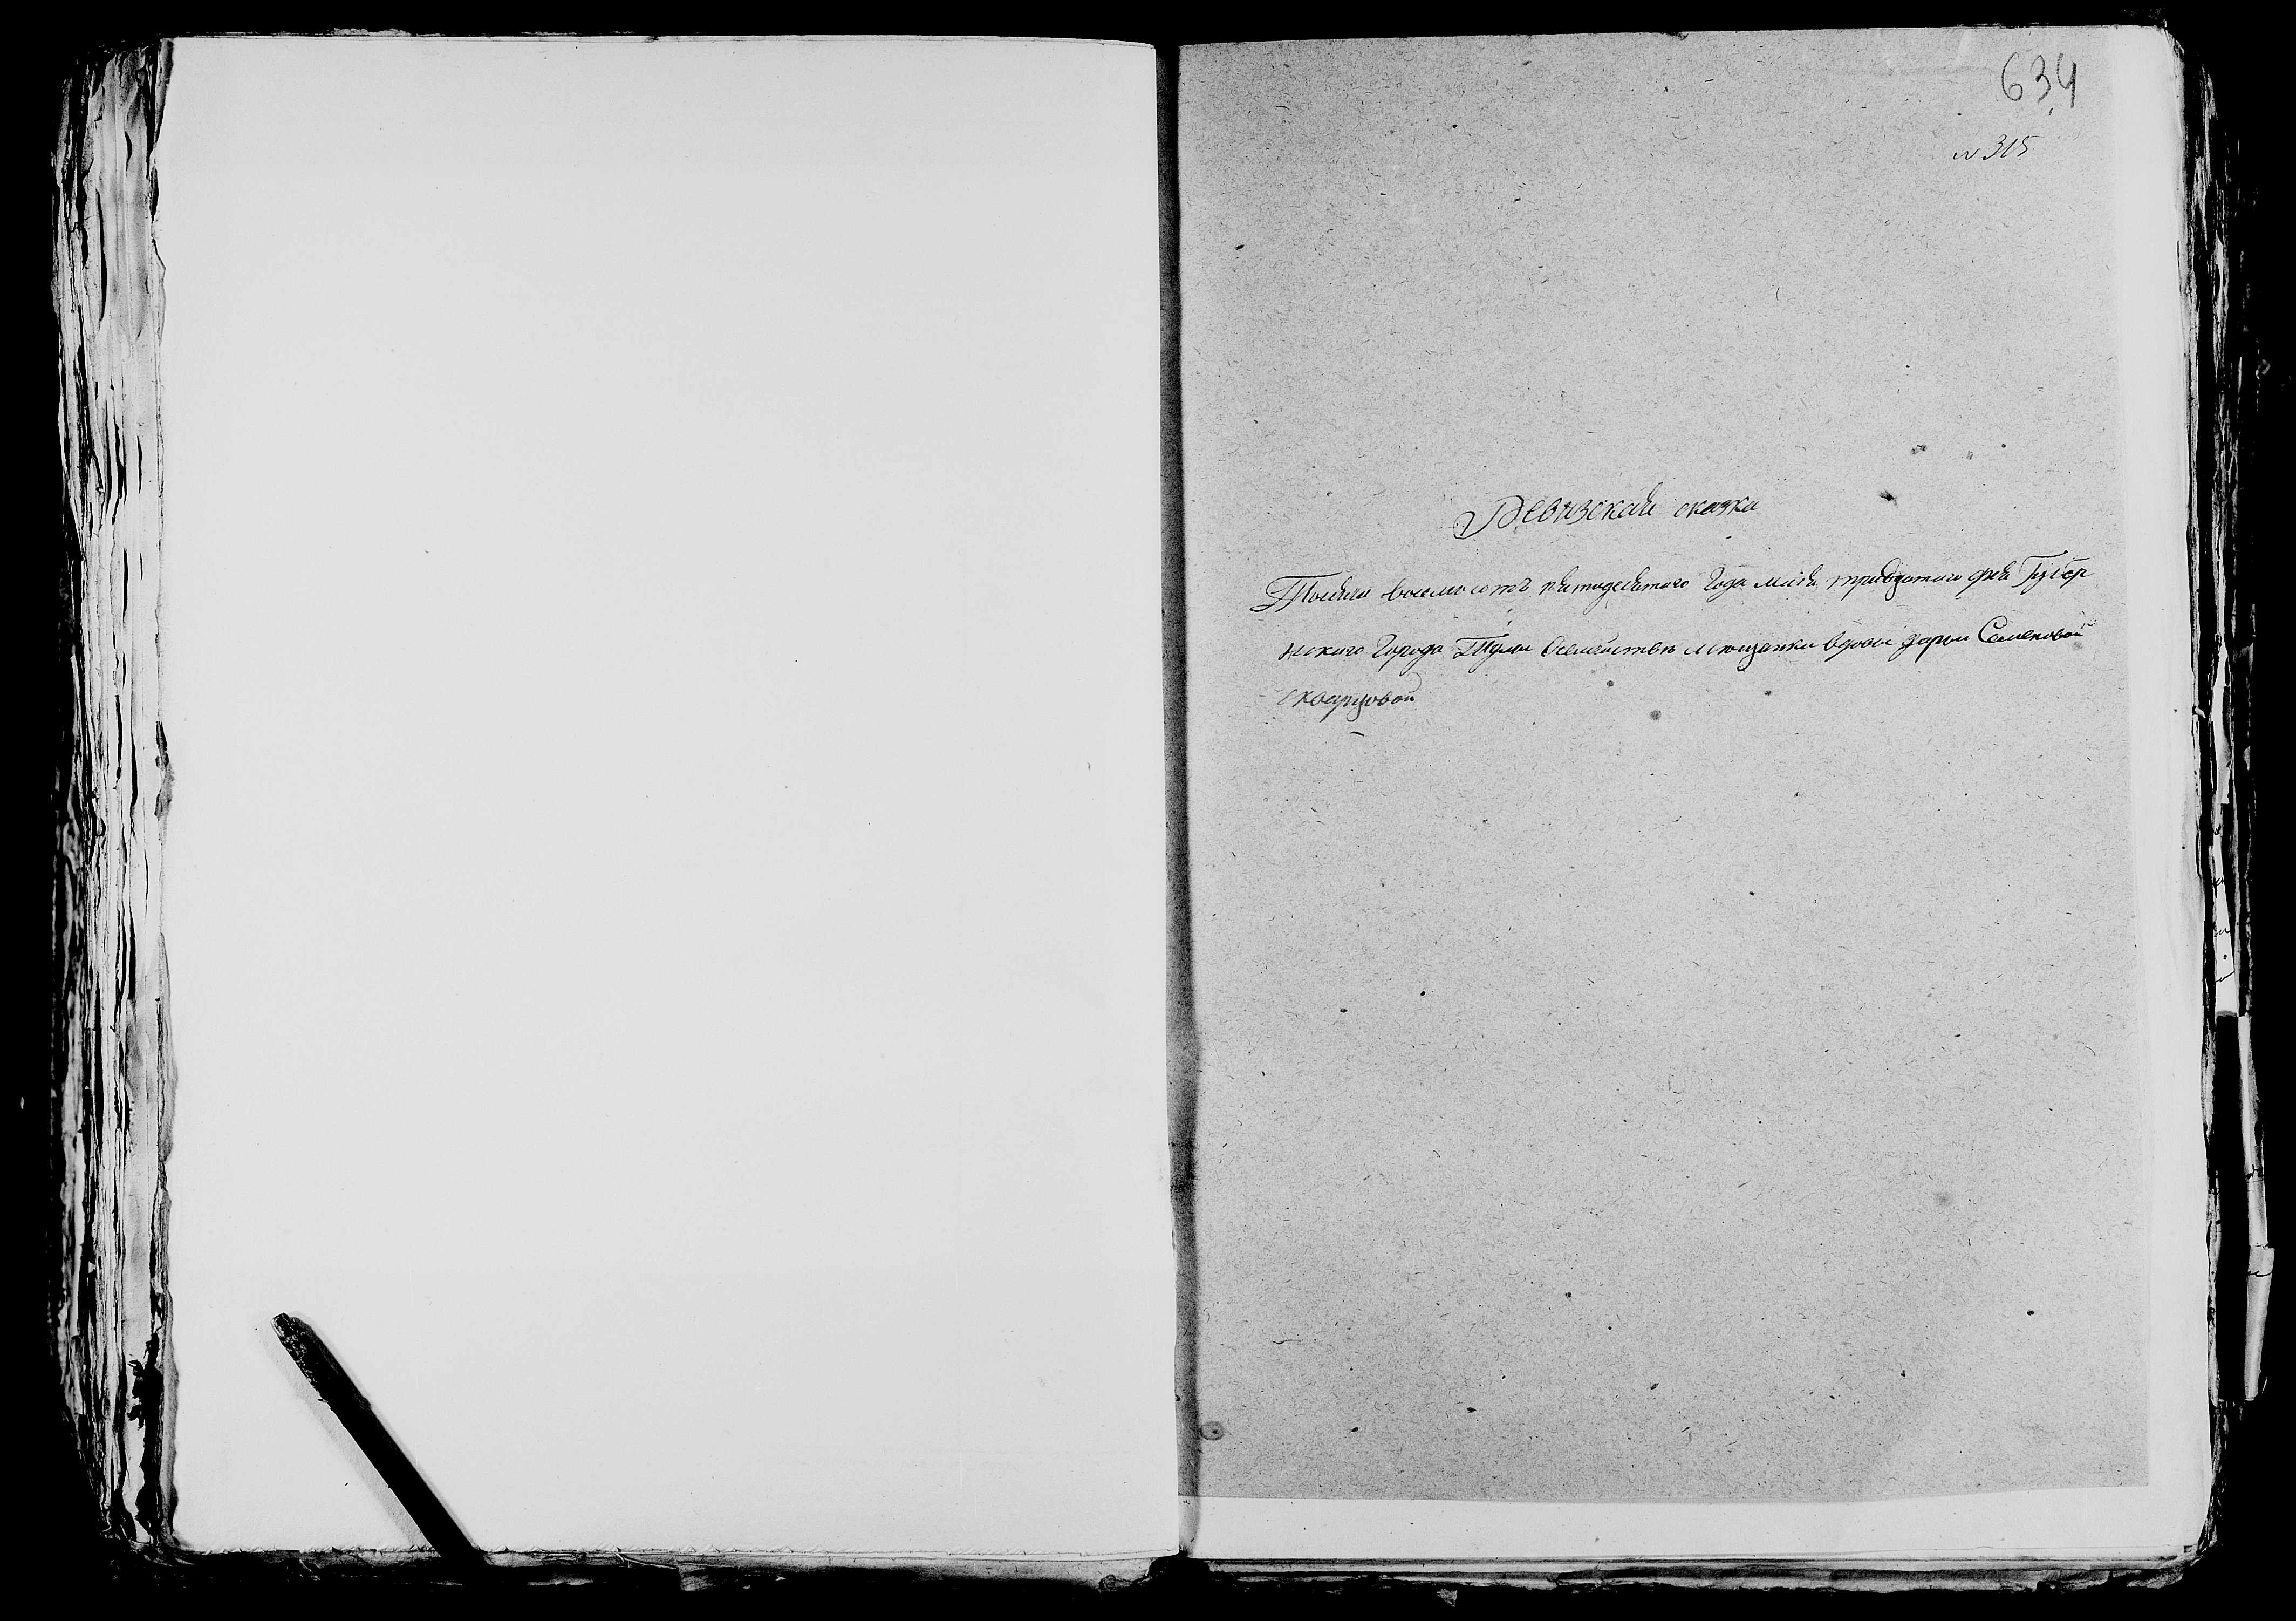 634
№ 315
Ревизская сказка
Тысяча восемь сотъ пятидесятого Года маiя тридцатого дня Губер
нского Города Тулы Осемействе мещанки вдовы дарьи Семеновой
скварцовой